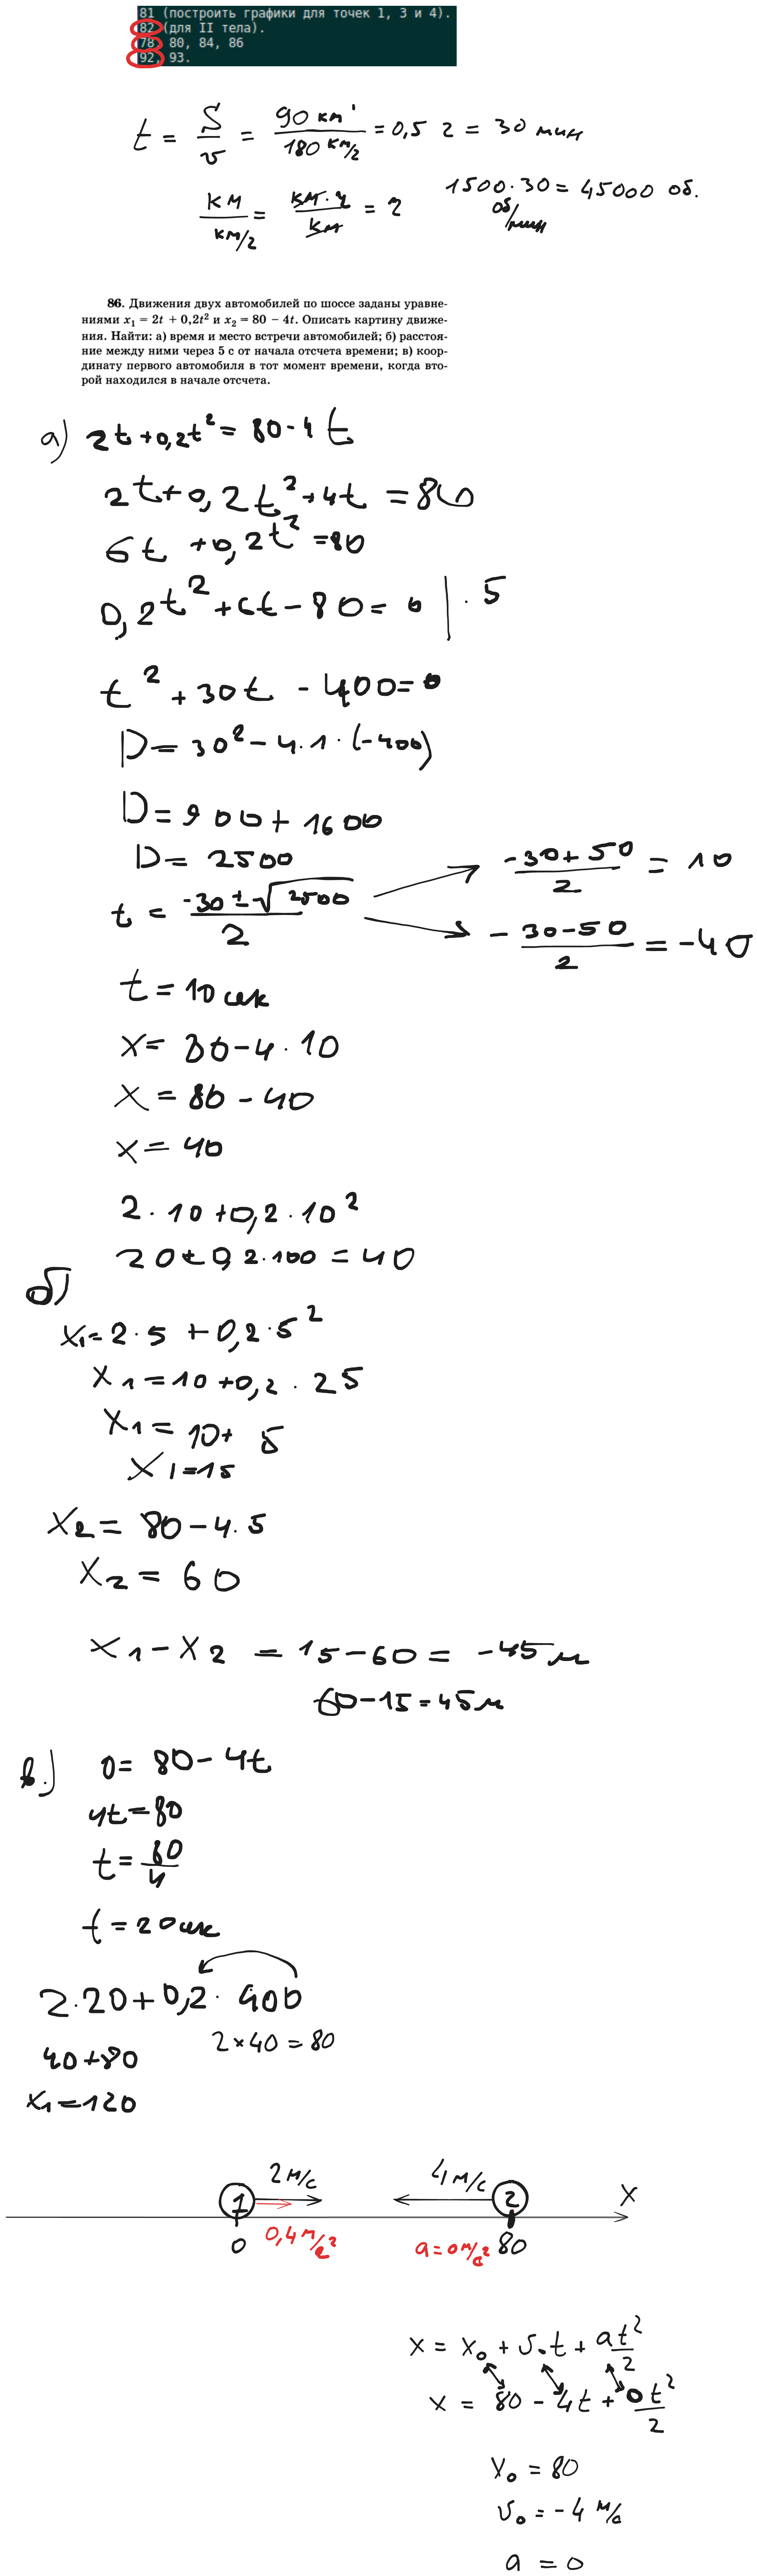 81 (построить графики для точек 1, 3 и 4).
82 (для II тела).
78, 80, 84, 86
92, 93.
t = S/v = 90 км / 180 км/ч = 0,5 ч = 30 мин
км / км/ч = км · ч / км = ч
1500 · 30 = 45000 об.
об/мин
86. Движения двух автомобилей по шоссе заданы уравне-
ниями x₁ = 2t + 0,2t² и x₂ = 80 − 4t. Описать картину движе-
ния. Найти: а) время и место встречи автомобилей; б) расстоя-
ние между ними через 5 с от начала отсчета времени; в) коор-
динату первого автомобиля в тот момент времени, когда вто-
рой находился в начале отсчета.
а) 2t + 0,2t² = 80 - 4t
2t + 0,2t² + 4t = 80
6t + 0,2t² = 80
0,2t² + 6t - 80 = 0 | · 5
t² + 30t - 400 = 0
D = 30² - 4 · 1 · (-400)
D = 900 + 1600
D = 2500
t = -30 ± √2500 / 2
-30 + 50 / 2 = 10
- 30 - 50 / 2 = -40
t = 10 сек
x = 80 - 4 · 10
x = 80 - 40
x = 40
2 · 10 + 0,2 · 10²
20 + 0,2 · 100 = 40
б)
x₁ = 2 · 5 + 0,2 · 5²
x₁ = 10 + 0,2 · 25
x₁ = 10 + 5
x₁ = 15
x₂ = 80 - 4 · 5
x₂ = 60
x₁ - x₂ = 15 - 60 = -45 м
60 - 15 = 45 м
в.) 0 = 80 - 4t
4t = 80
t = 80/4
t = 20 сек
2 · 20 + 0,2 · 400
2 × 40 = 80
40 + 80
x₁ = 120
1 2 м/с 4 м/с 2 x
0 0,4 м/с² a = 0 м/с² 80
x = x₀ + v₀t + at²/2
x = 80 - 4t + 0t²/2
x₀ = 80
v₀ = -4 м/с
a = 0